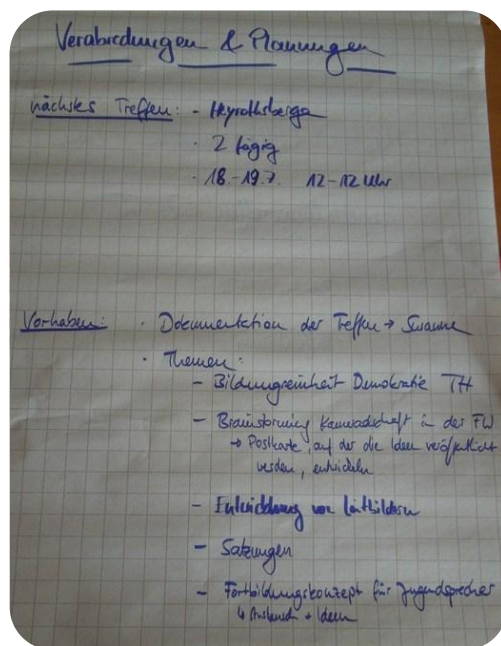 Verabredungen & Planungen
nächstes Treffen: - Heyrothsberge
· 2 tägig
· 18.-19.7. 12-12 Uhr
Vorhaben: · Dokumentation der Treffen → Susanne
· Themen:
- Bildungseinheit Demokratie TH
- Brainstorming Kameradschaft in der FW
→ Postkarte, auf der die Ideen veröffentlicht
werden, entwickeln
- Entwicklung von Leitbildern
- Satzungen
- Fortbildungskonzept für Jugendsprecher
↳ Austausch + Ideen